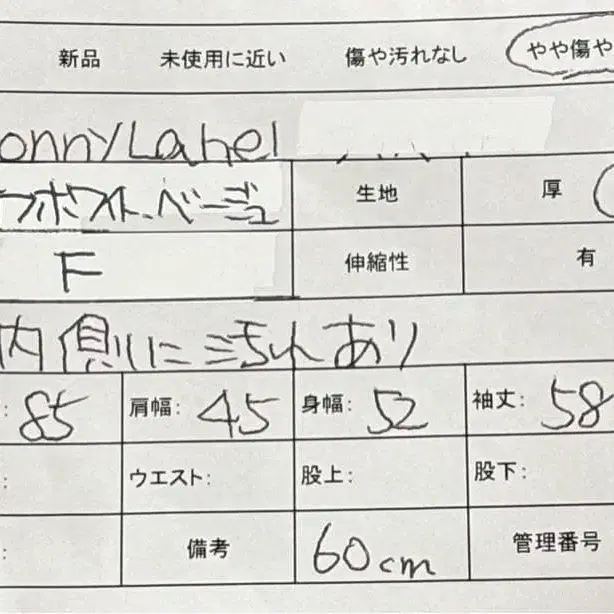 新品 未使用に近い 傷や汚れなし やや傷や
onnyLabel
フホワイト、ベージュ 生地 厚
F 伸縮性 有
内側に汚れあり
: 85 肩幅: 45 身幅: 52 袖丈: 58
: ウエスト: 股上: 股下:
: 備考 60cm 管理番号